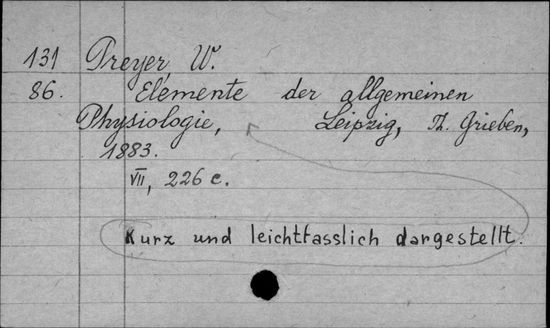 131 Preyer, W.
86. Elemente der allgemeinen
Physiologie, Leipzig, Th. Grieben,
1883.
VII, 226 c.
Kurz und leichtfasslich dargestellt.